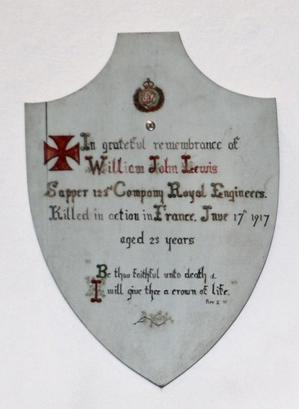 In grateful remembrance of
William John Lewis
Sapper 12 Company Royal Engineers.
Killed in action in France, June 17th 1917
aged 23 years
Be thou faithful unto death &
I will give thee a crown of life."
Rev 2